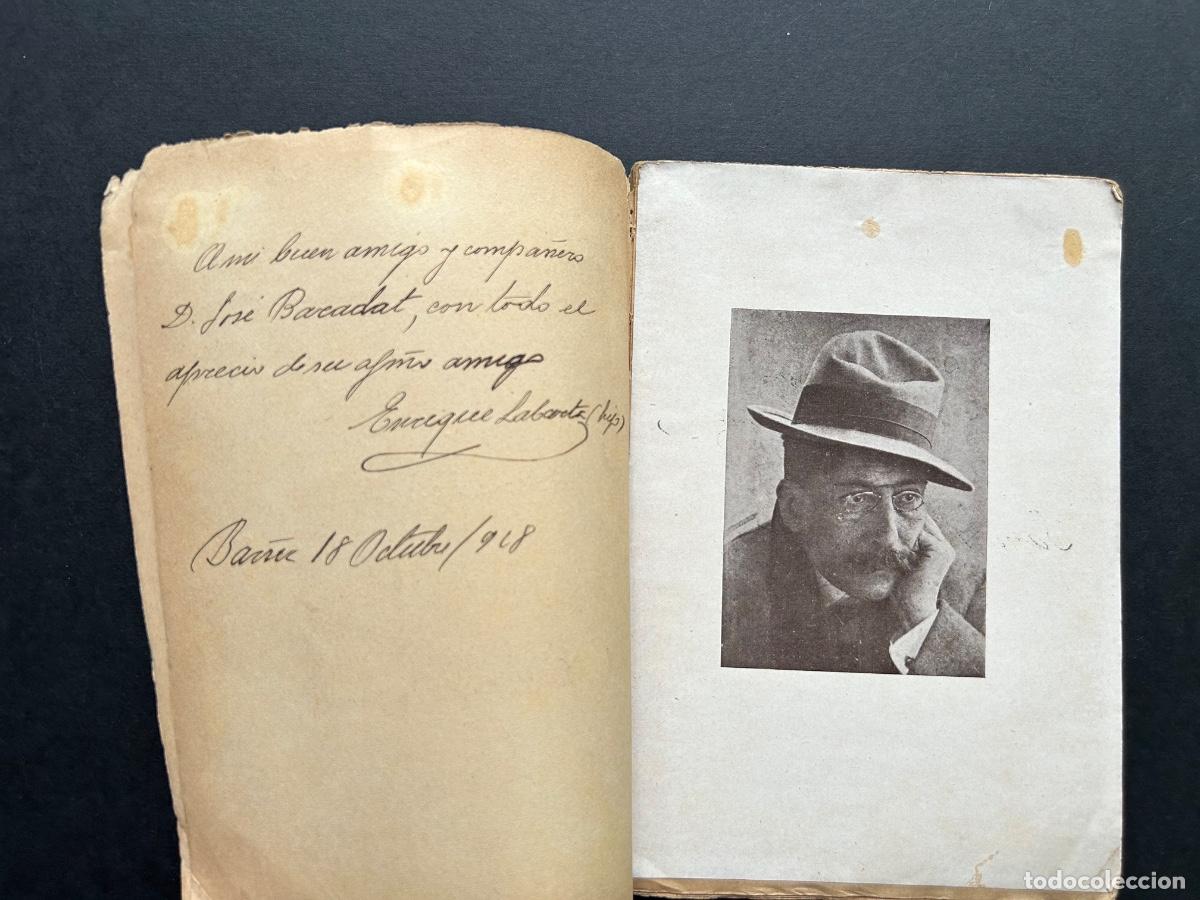 A mi buen amigo y compañero
D. José Baradat, con todo el
aprecio de su afmo amigo
Enrique Labarta (hijo)
18 Octubre/918
todocoleccion